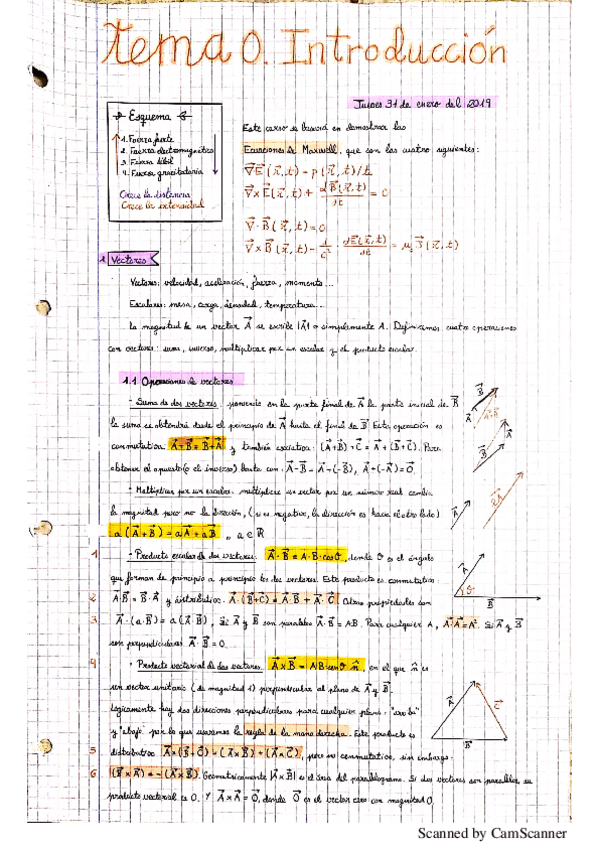 tema 0. Introducción
Jueves 31 de enero del 2019
Esquema
1. Fuerza fuerte
2. Fuerza electromagnética
3. Fuerza débil
4. Fuerza gravitatoria
Crece la distancia
Crece la intensidad
Este curso se basará en demostrar las
Ecuaciones de Maxwell, que son las cuatro siguientes:
∇E⃗(x⃗,t) - ρ(x⃗,t)/
∇⃗×E⃗(x⃗,t) + dB⃗(x⃗,t)/dt = 0
∇⃗·B⃗(x⃗,t) = 0
∇⃗×B⃗(x⃗,t) - 1/c² · dE⃗(x⃗,t)/dt = μ₀J⃗(x⃗,t)
1 Vectores
Vectores: velocidad, aceleración, fuerza, momento...
Escalares: masa, carga, densidad, temperatura...
La magnitud de un vector A⃗ se escribe |A⃗| o simplemente A. Definiremos cuatro operaciones
con vectores: suma, inverso, multiplicar por un escalar y el producto escalar.
1.1 Operaciones de vectores
- Suma de dos vectores: poniendo en la parte final de A⃗ la parte inicial de B⃗
la suma se obtendrá desde el principio de A⃗ hasta el final de B⃗. Esta operación es
conmutativa: A⃗+B⃗=B⃗+A⃗ y también asociativa: (A⃗+B⃗)+C⃗=A⃗+(B⃗+C⃗). Para
obtener el opuesto (o el inverso) basta con: A⃗-B⃗=A⃗+(-B⃗), A⃗+(-A⃗)=0⃗.
- Multiplicar por un escalar: multiplicar un vector por un número real cambia
la magnitud pero no la dirección, (si es negativo, la dirección es hacia el otro lado)
a(A⃗+B⃗)=aA⃗+aB⃗, a∈ℝ
1 - Producto escalar de dos vectores: A⃗·B⃗=A·B·cosθ, donde θ es el ángulo
que forman de principio a principio los dos vectores. Este producto es conmutativo:
2 A⃗·B⃗=B⃗·A⃗ y distributivo: A⃗·(B⃗+C⃗)=A⃗·B⃗+A⃗·C⃗. Otras propiedades son
3 A⃗·(a·B⃗)=a(A⃗·B⃗), Si A⃗ y B⃗ son paralelos A⃗·B⃗=AB. Para cualquier A, A⃗·A⃗=A². Si A⃗ y B⃗
son perpendiculares A⃗·B⃗=0.
4 - Producto vectorial de dos vectores: A⃗×B⃗=AB senθ n̂, en el que n̂ es
un vector unitario (de magnitud 1) perpendicular al plano de A⃗ y B⃗.
Lógicamente hay dos direcciones perpendiculares para cualquier plano: "arriba"
y "abajo", por lo que usaremos la regla de la mano derecha. Este producto es
5 distributivo: A⃗×(B⃗+C⃗)=(A⃗×B⃗)+(A⃗×C⃗), pero no conmutativo, sin embargo:
6 (B⃗×A⃗)=-(A⃗×B⃗). Geométricamente |A⃗×B⃗| es el área del paralelogramo. Si dos vectores son paralelos su
producto vectorial es 0. Y A⃗×A⃗=0⃗, donde 0⃗ es el vector cero con magnitud 0.
Scanned by CamScanner